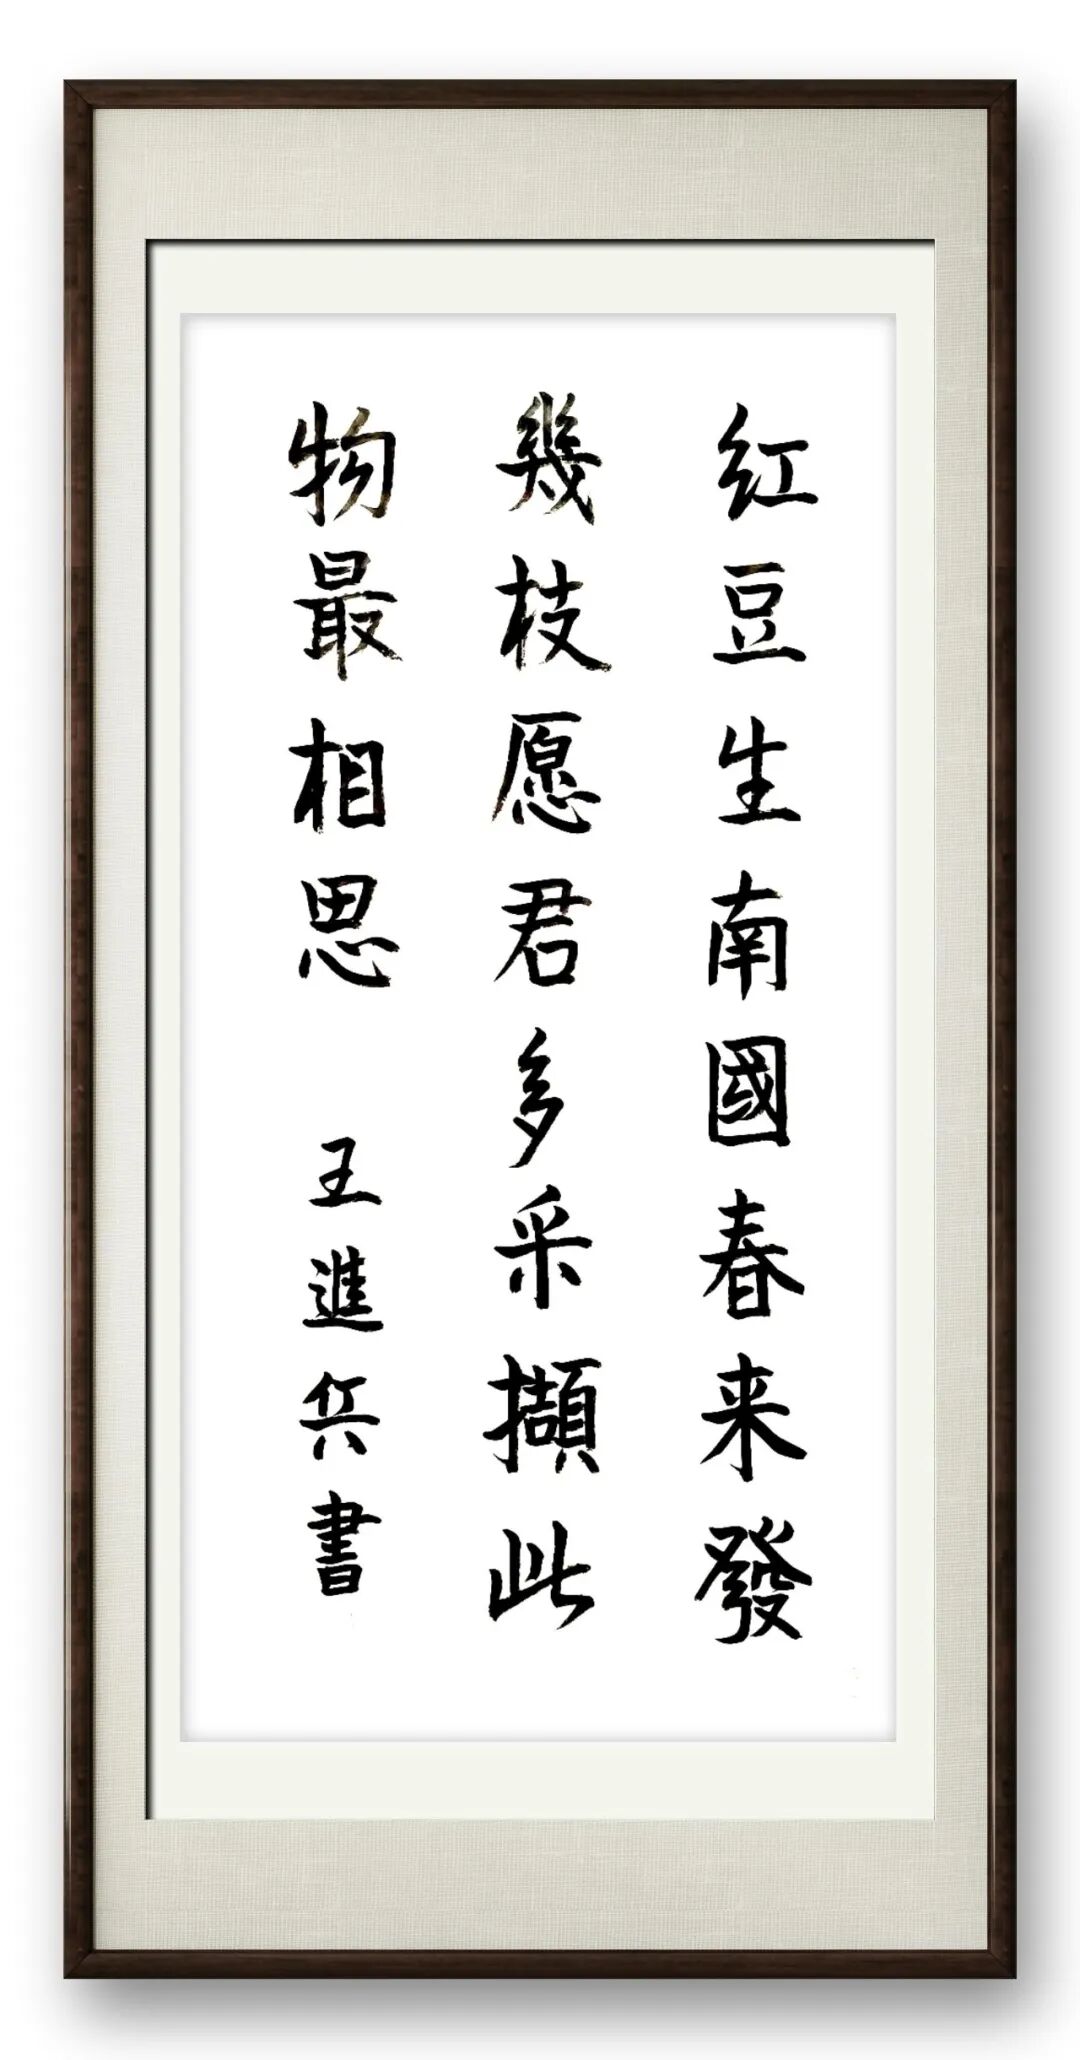 红豆生南國春来發
幾枝愿君多采擷此
物最相思
王進兵書